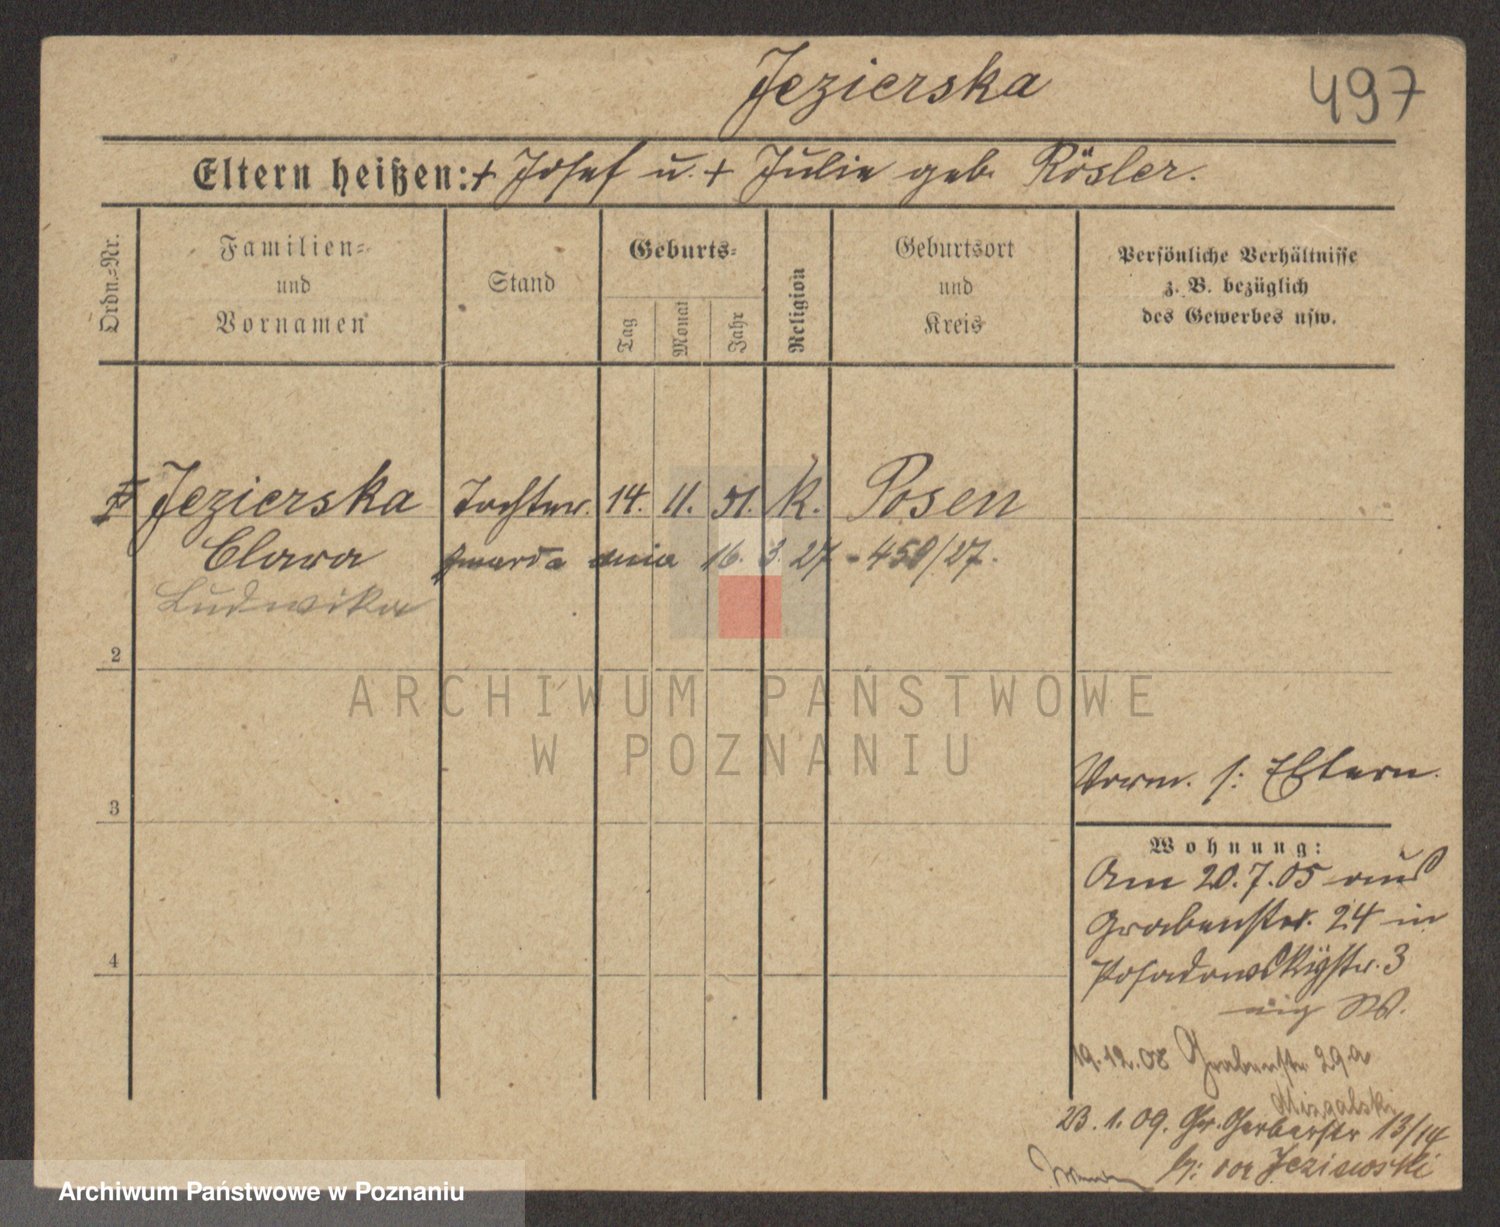 Jezierska
497
Eltern heißen: + Josef u. + Julie geb. Rösler.
Ordn.=Nr.
Familien=
und
Vornamen
Stand
Geburts=
Tag
Monat
Jahr
Religion
Geburtsort
und
Kreis
Persönliche Verhältnisse
z. B. bezüglich
des Gewerbes usw.
Jezierska Tochter. 14. 11. 51. K. Posen
Clara zmarła dnia 16. 3. 27 - 450/27.
Ludwika
2
3
4
Vorm. s: Eltern.
Wohnung:
Am 20.7.05 aus
Grabenstr. 24 in
Posadowskystr. 3
19.12.08 Grabenstr 29a
Mizgalski
23.1.09. Gr. Gerberstr 13/14
b: von Jeziewoski
ARCHIWUM PAŃSTWOWE
W POZNANIU
Archiwum Państwowe w Poznaniu